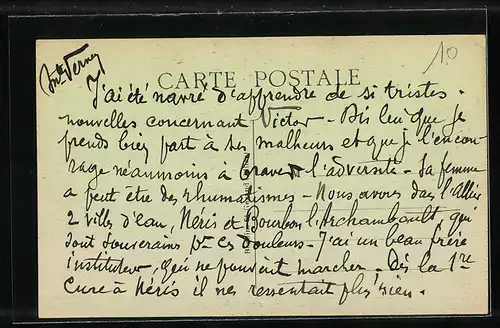 Inte Verney
10
CARTE POSTALE
J'ai été navré d'apprendre de si tristes
nouvelles concernant Victor - Dis leu que je
prends bien part à ses malheurs et que je l'encou
rage néanmoins à braver l'adversité - Sa femme
a peut être des rhumatismes - Nous avons dans l'Allier
2 villes d'eau, Néris et Bourbon l'Archambault, qui
sont souverains pr ces douleurs - J'ai un beau frère
instituteur, qui ne pouvait marcher. Dès la 1re
cure à Néris il ne ressentait plus rien.